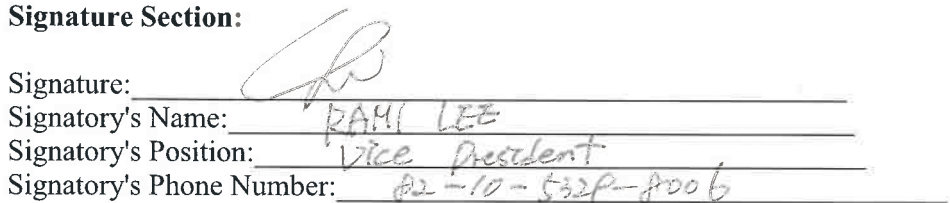 Signature Section:
Signature:
Signatory's Name: RAMI LEE
Signatory's Position: Vice President
Signatory's Phone Number: